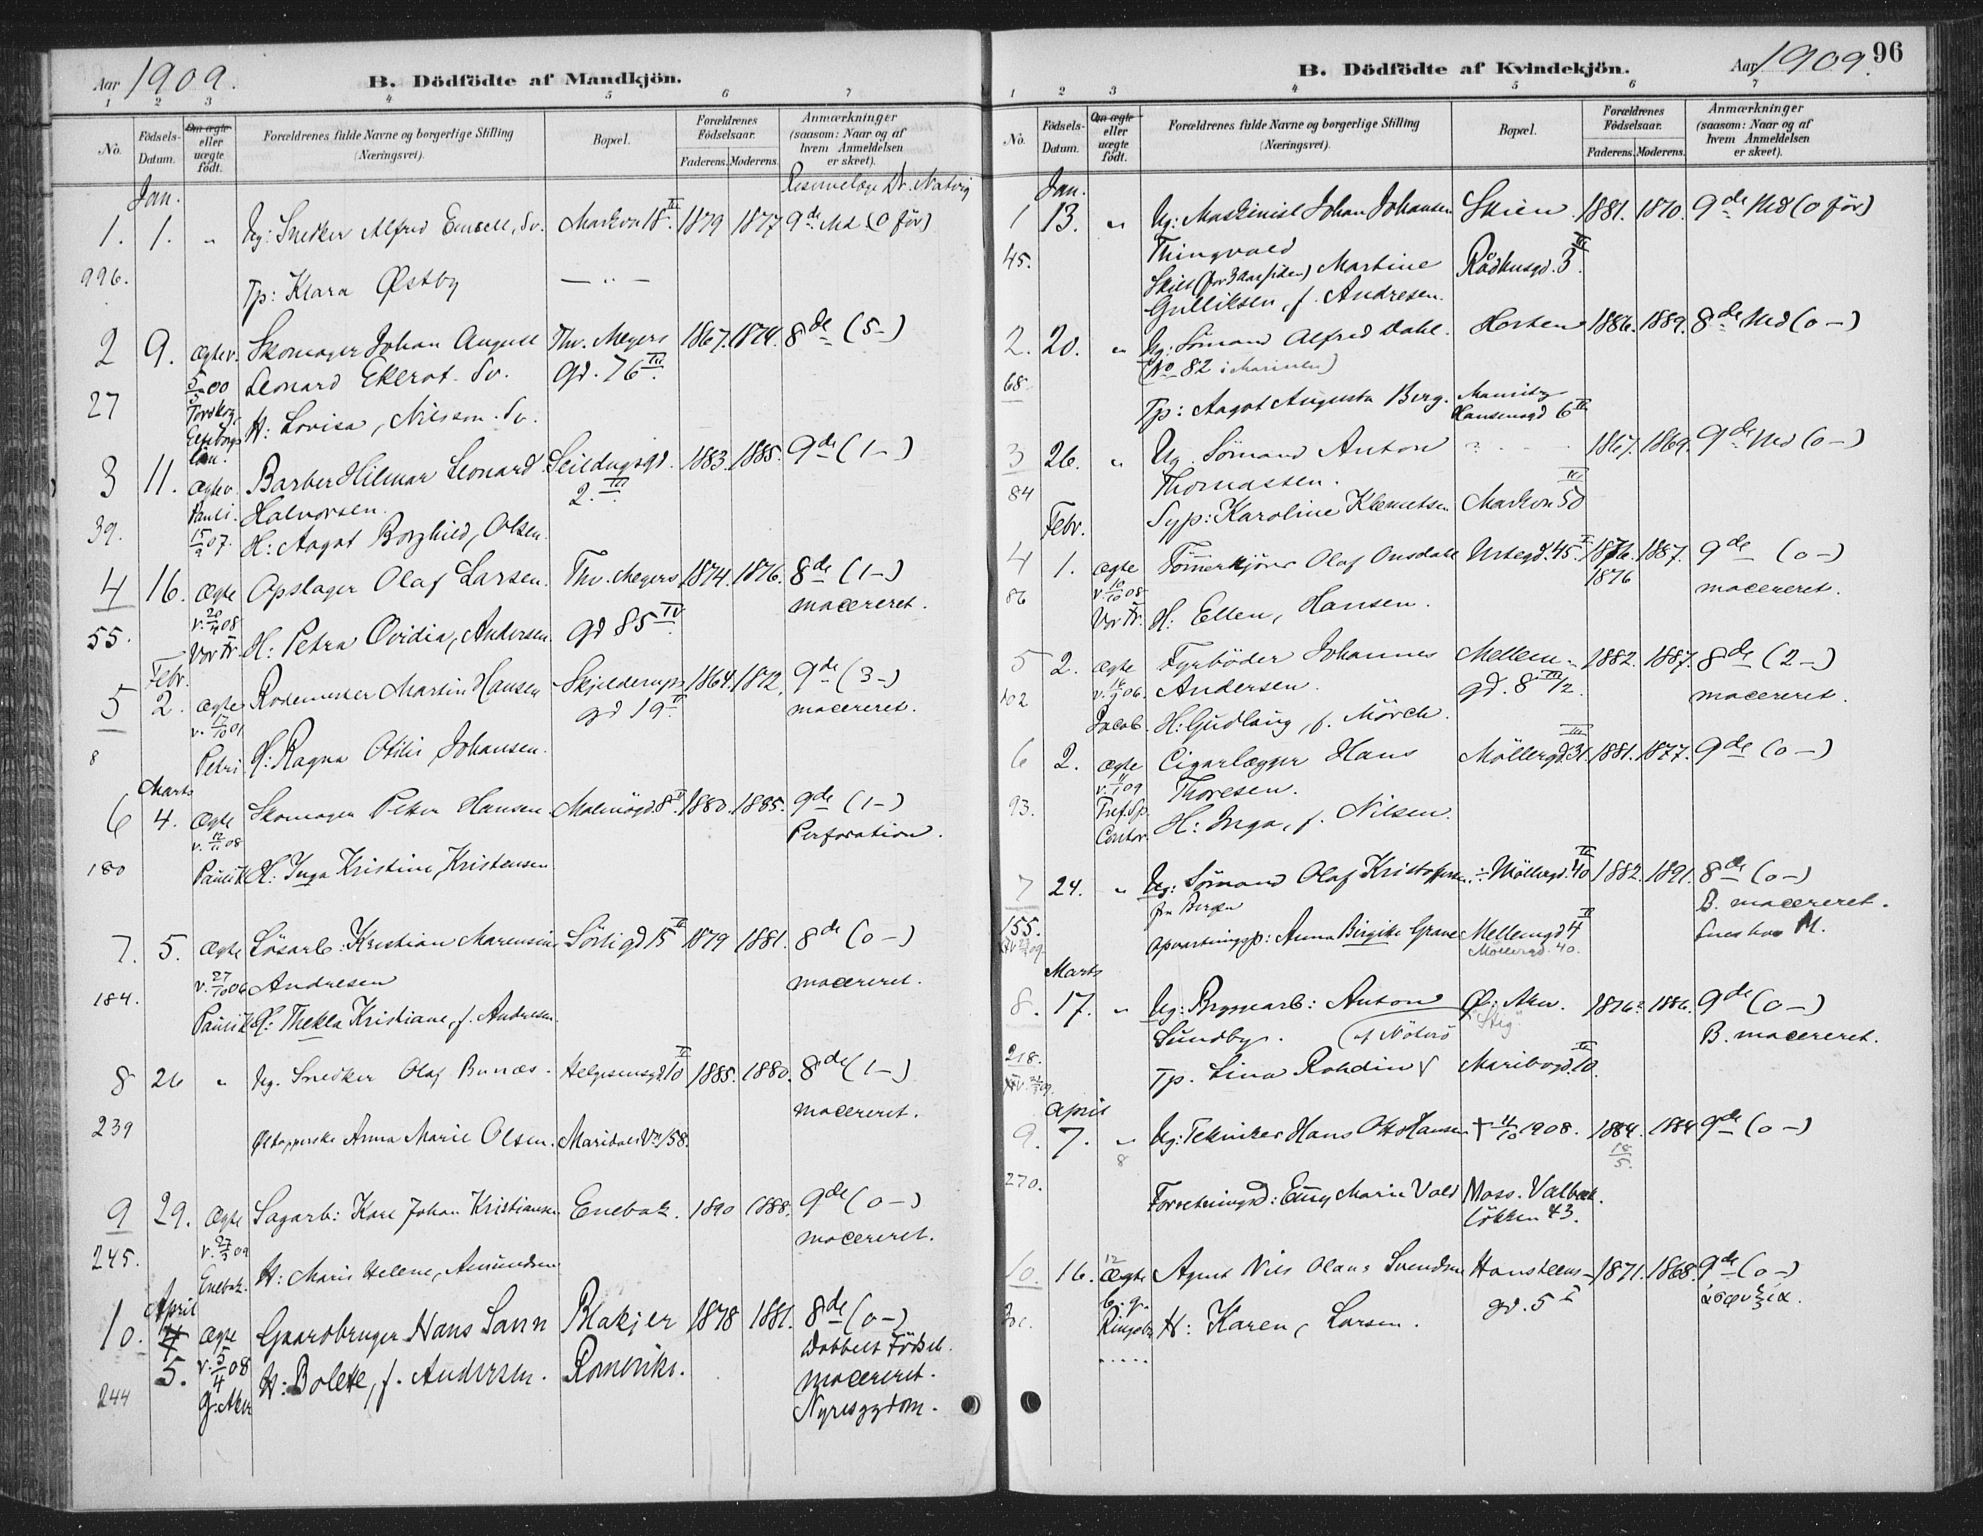 Aar 1909.
B. Dödfödte af Mandkjön.
1 2 3 4 5 6 7
No.
Födsels-Datum.
Om ægte eller uægte født.
Forældrenes fulde Navne og borgerlige Stilling (Næringsvei).
Bopæl.
Forældrenes Födselsaar.
Faderens. Moderens.
Anmærkninger (saasom: Naar og af hvem Anmeldelsen er skeet).
Jan.
Dr. Natvig
1. 1. " Ug: Snedker Alfred Sv. Markvn 18 III 1879 1877 9de Md (0 før)
996. Tp: Klara Østby — " —
2 9. Ægte v. Skomager Johan August Thv. Meyers 1867. 1874. 8de (5 –)
5/5 00 Leonard Ekerot. Sv. gd. 76 III.
27 H: Lovisa, Nilsson. Sv.
län.
3 11. Ægte v. Barber Hilmar Leonard Seildugsgd. 1883. 1885. 9de (1 –)
Pauli. Halvorsen. 2. III
39. 07. H: Aagot Borghild, Olsen.
4 16. Ægte Opslager Olaf Larsen. Thv. Meyers 1874. 1876. 8de (1 –)
v. 20/4 08 macereret.
55. Vor Fr. H: Petra Ovidia, Andersen gd 85 IV
Febr.
5 2. Ægte Rodemester Martin Hansen Skjelderups 1864. 1872. 9de (3 –)
v. 17/10 01 gd 19 macereret.
8 Petri H: Ragna Otilie Johansen.
Marts
6 4. Ægte Skomager Peter Hansen Malmögd. 8 1880. 1885. 9de (1 –)
v. 12/11 08 Perforation.
180 Pauli K H: Inga Kristine, Kristensen
7. 5. Ægte Løsarb. Kristian Marensius Sörligd 15 1879 1881. 8de (0 –)
184. v. 27/10 06 Andresen macereret.
Pauli K H: Thekla Kristiane, f. Andresen
8 26 " Ug. Snedker Olaf Bunæs. Helgesensgd 10 1885. 1880. 8de (1 –)
macereret.
239 Anna Marie Olsen. Maridalsvn 158.
9 29. Ægte Sagarb: Karl Johan Kristiansen Enebak. 1890 1888. 9de (0 –)
v. 27/3 09 macereret.
245. Enebak. H: Marie Helene, Amundsen
April
10. 5. Ægte Gaardbruger Hans Sann Blakjer 1878 1881. 8de (0 –)
v. 5/4 08 Dobbelt Födsel.
H: Bolette, f. Andersen. Romerike. macereret.
244 G. Aker Nyresygdom.
96
B. Dödfödte af Kvindekjön.
Aar 1909.
1 2 3 4 5 6 7
No.
Födsels-Datum.
Om ægte eller uægte født.
Forældrenes fulde Navne og borgerlige Stilling (Næringsvei).
Bopæl.
Forældrenes Födselsaar.
Faderens. Moderens.
Anmærkninger (saasom: Naar og af hvem Anmeldelsen er skeet).
Jan.
1 13. " Ug: Maskinist Johan Johansen Skien 1881. 1870. 9de Md (0 før)
Thingvold
45. Skilt (for 3 Aar siden) Martine Rådhusgd. 3 III.
Gulliksen, f. Andresen.
2. 20. " Ug: Sömand Alfred Dahl. Horten 1886. 1889. 8de Md (0 –)
(No 82 i Marinen)
68. Tp: Aagot Augusta Berg. Mauritz Hansensgd 6
3 26. " Ug. Sömand Anton ? 1867. 1869. 9de Md (0 –)
Thomassen.
84 Syp: Karoline Klemetsen Markvn 50 III
Febr.
4 1. Ægte Tömmerkjörer Olaf Onsdahl Urtegd. 45. 1876. 1887. 9de (0 –)
v. 10/10 08 1876 macereret.
86 Vor Fr. H: Ellen, Hansen.
5 2. Ægte Fyrböder Johannes Mellem- 1882. 1887. 8de (2 –)
Andersen. gd. 8 III 1/2. macereret.
102 Jacob. H: Gudlaug, f. Mörch.
6 2. Ægte Cigarlægger Hans Möllergd 31. III 1881. 1877. 9de (0 –)
v. 09 Thoresen.
93. Contor. H: Inga, f. Nilsen.
7 24. " Ug: Sömand Olaf Kristoffersen ÷ Möllergd. 40 1882. 1891. 8de (0 –)
fra Bergen B. macereret.
155. Opvartningsp: Anna Birgitte Grave Mellemgd 4 M.
Möllergd. 40.
Marts
8. 17. " Ug: Bryggearb: Anton Ø. Aker. 1876? 1886. 9de (0 –)
Sundby. (af Nöterö "Stig" B. macereret.
218. Tp. Lina Rohdin Maribogd. 10.
April
9. 7. " Ug: Tekniker Hans Otto Hansen † 4/10 1908. 1884. 1884 9de (0 –)
8 18/5.
270. Forretningsd: Emy Marie Vold Moss. Valbæk-
lökken 43.
10. 16. Ægte Agent Nils Olaus Svendsen Hansteens- 1871. 1868. 9de (0 –)
b. g. gd. 5 I ασφυξία.
Ringebu H: Karen, Larsen.